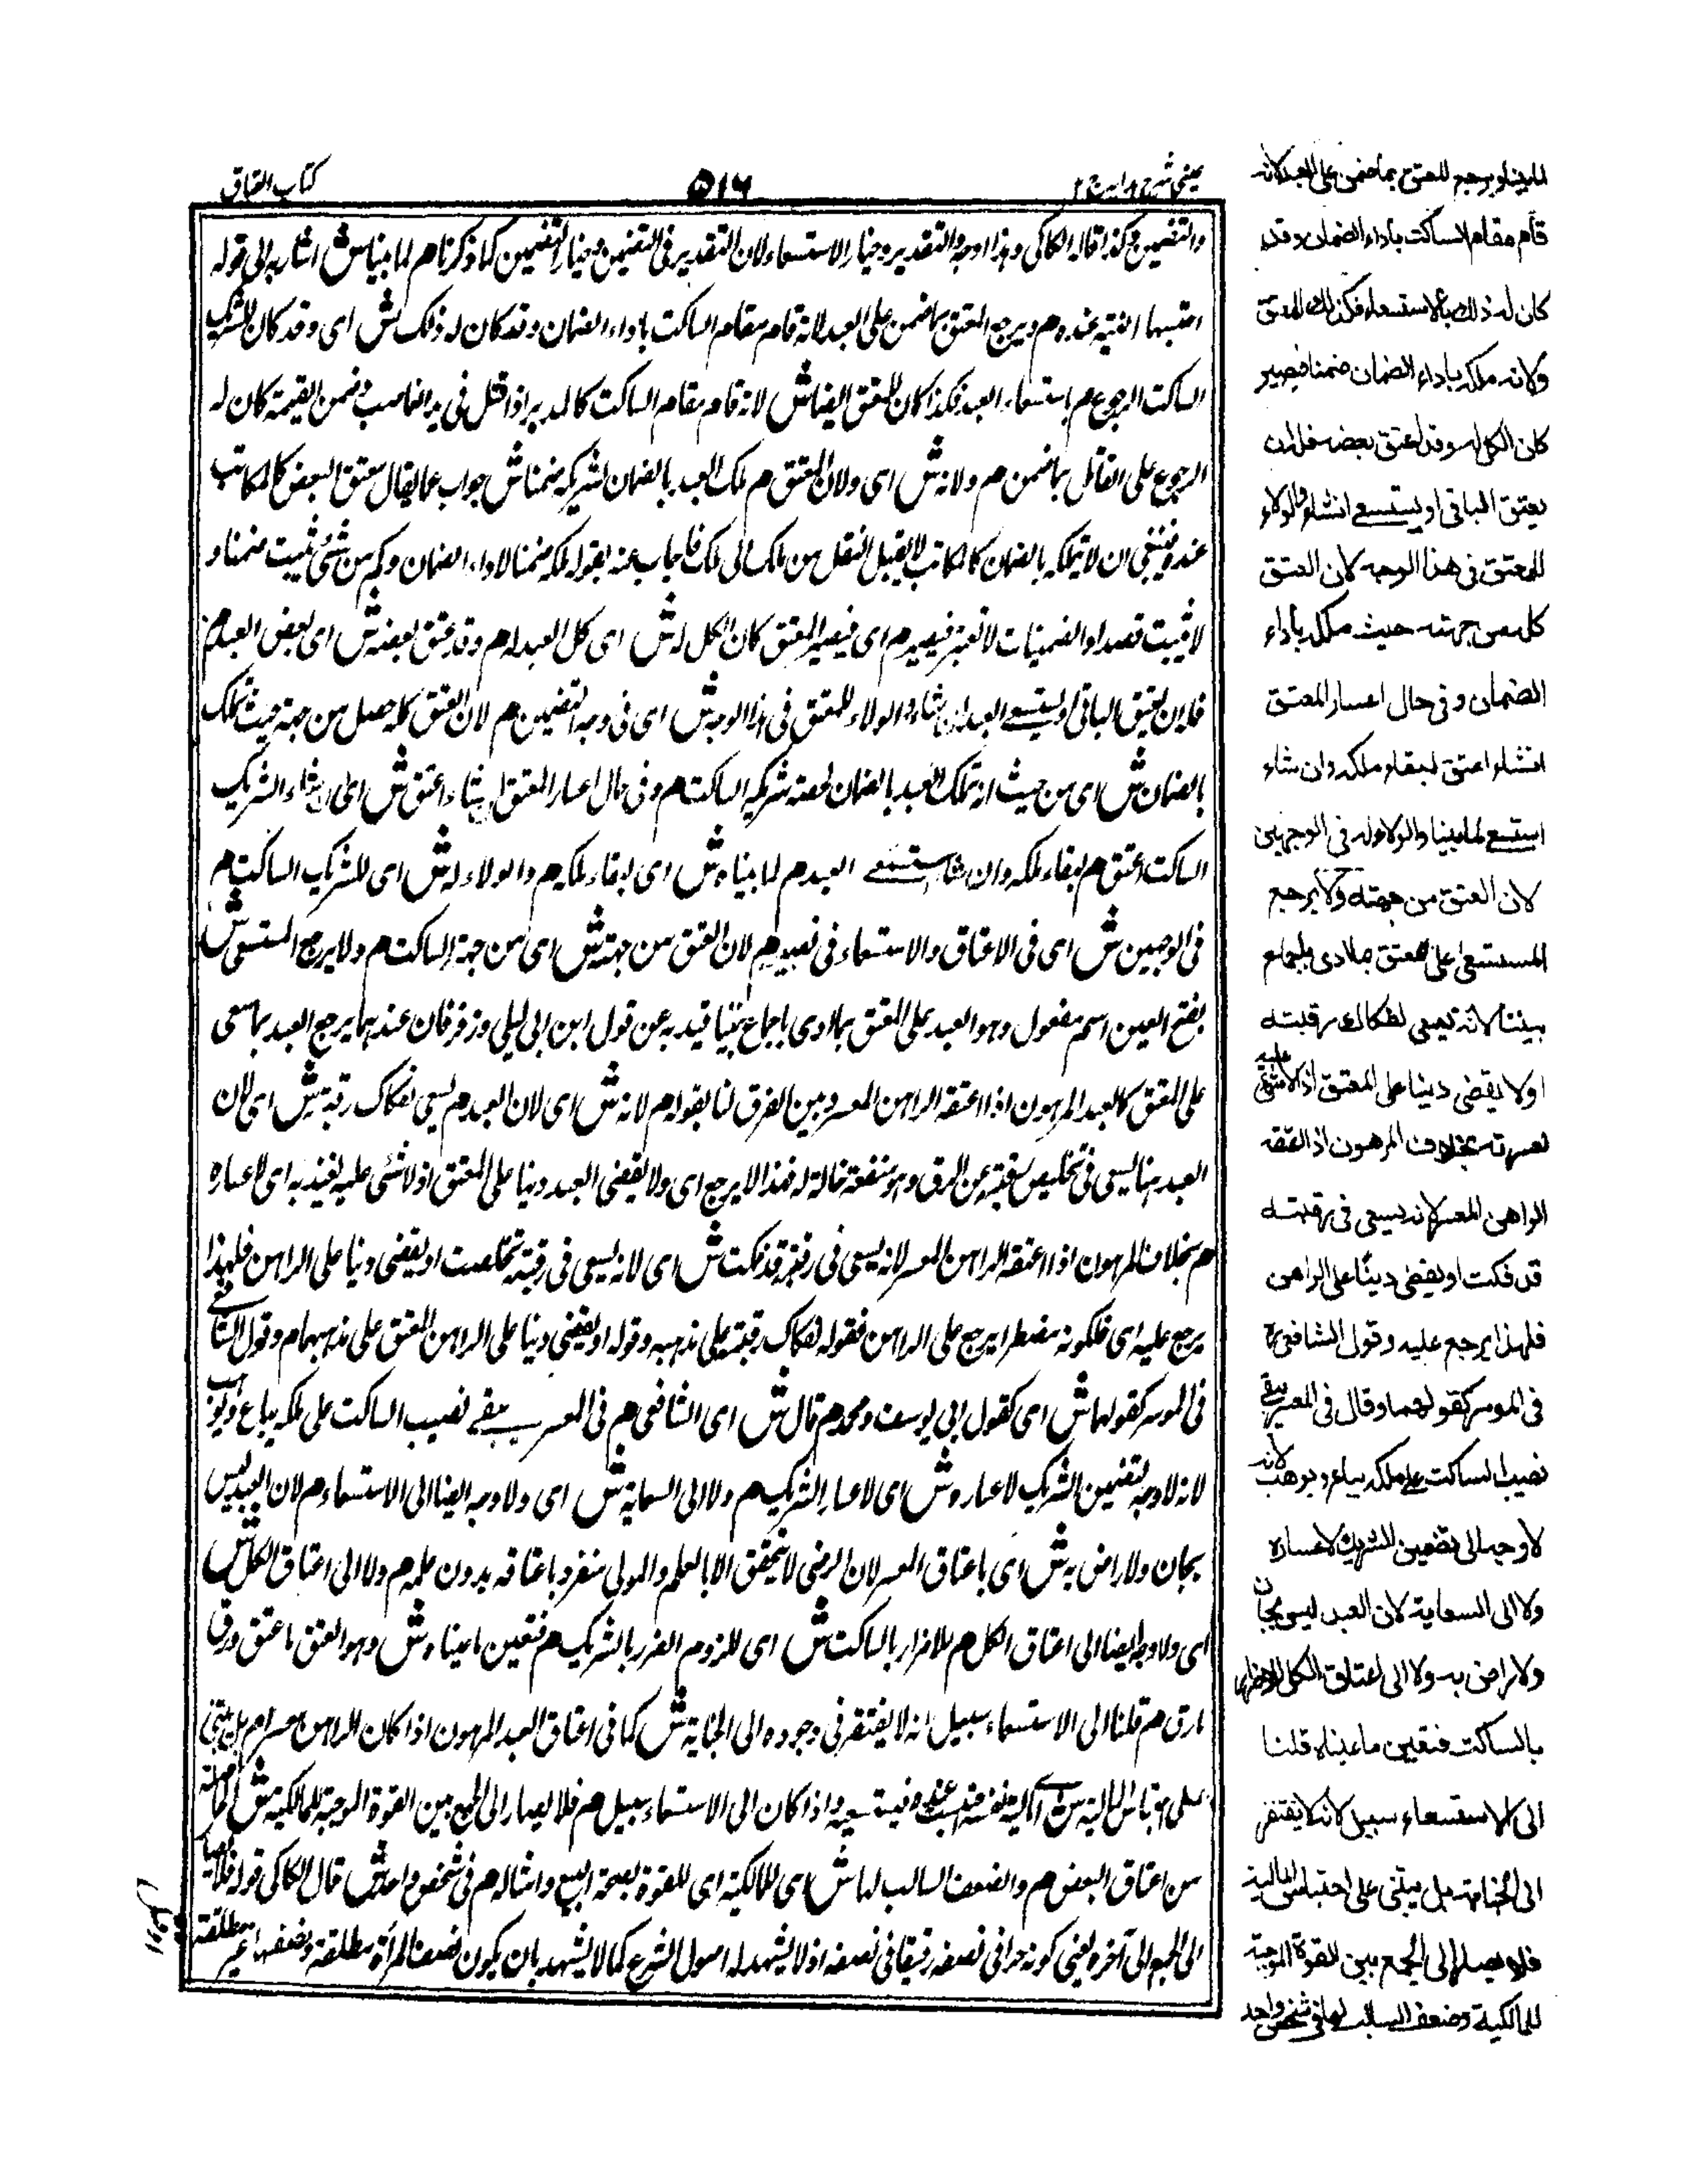 عینی شرح ہدایہ ج ۲
۵۱۶
کتاب العتاق
والتضمین وکذا قالہ الکاکی وہذا اوجہ والتقدیر وخیار الاستسعاء لان التقدیر فی التضمین وخیار التضمین کما ذکرنا ھم لما بینا ش اشار بہ الی قولہ
احتبسہا الیتہ عندہ م ویرجع المعتق بما ضمن علی العبد لانہ قام مقام الساکت باداء الضمان وقد کان لہ ذلک ش ای وقد کان للشریک
الساکت الرجوع م باستسعاء العبد فکذا کان للمعتق ایضا ش لانہ قام مقام الساکت کالمدبر اذا قتل فی ید الغاصب وضمن القیمة کان لہ
الرجوع علی القاتل بما ضمن م ولانہ ش ای ولان المعتق م ملک العبد بالضمان لشریکہ ضمنا ش جواب عما یقال معتق البعض کالمکاتب
عندہ فینبغی ان لا یتملکہ بالضمان کالمکاتب لا یقبل النقل من ملک الی ملک فاجاب عنہ بقولہ ملکہ ضمنا لاداء الضمان وکم من شئ یثبت ضمنا و
لا یثبت قصدا والضمنیات لا تعتبر فیصیر م ای فیصیر المعتق کان الکل لہ ش ای کل العبد لہ م وقد عتق بعضہ ش ای بعض العبد م
فلہ ان یعتق الباقی او یستسعے العبد ان شاء والولاء للمعتق فی ہذا الوجہ ش ای فی وجہ التضمین م لان العتق کلہ حصل من جہتہ حیث تملک
بالضمان ش ای من حیث انہ تملک العبد بالضمان لحصتہ شریکہ الساکت م وفی حال اعسار المعتق ان شاء اعتق ش ای ان شاء الشریک
الساکت اعتق م لبقاء ملکہ وان شاء استسعے العبد م لما بیناہ ش ای لبقاء ملکہ م والولاء لہ ش ای للشریک الساکت م
فی الوجہین ش ای فی الاعتاق والاستسعاء فی نصیبہ م لان العتق من جہتہ ش ای من جہة الساکت م ولا یرجع المستسعی ش
بفتح العین اسم مفعول وہو العبد علی المعتق بما ادی باجماع بیننا قید بہ عن قول ابن ابی لیلی وزفر فان عندہما یرجع العبد بما سعی
علی المعتق کالعبد المرہون اذا اعتقہ الراہن المعسر وبین الفرق لنا بقولہ م لانہ ش ای لان العبد م یسعی لفکاک رقبتہ ش ای لان
العبد ہنا یسعی فی تخلیص رقبتہ عن الرق وہو منفعة خالصة لہ فلہذا لا یرجع ای ولا یقضی العبد دینا علی المعتق اذ لا شئی علیہ یفید بہ ای لاعسارہ
م بخلاف المرہون اذا اعتقہ الراہن المعسر لانہ یسعی فی رقبة قد فکت ش ای لانہ یسعی فی رقبة تخلصت او یقضی دینا علی الراہن فلہذا
یرجع علیہ ای فلکونہ مضطرا یرجع علی الراہن فقولہ لفکاک رقبتہ علی مذہبہ وقولہ او یقضی دینا علی الراہن المعتق علی مذہبہما م وقول الشافعے
فی الموسر کقولہما ش ای کقول ابی یوسف ومحمد م قال ش ای الشافعی م فی المعسر یبقے نصیب الساکت علی ملکہ یباع ویوہب
لانہ لا وجہ لتضمین الشریک لاعسارہ ش ای لاعسار الشریک م ولا الی السعایة ش ای ولا وجہ ایضا الی الاستسعاء م لان العبد لیس
بجان ولا راض بہ ش ای باعتاق المعسر لان الرضی لا یتحقق الا بالعلم والمولی منفرد باعتاقہ بدون علمہ م ولا الی اعتاق الکل ش
ای ولا وجہ ایضا الی اعتاق الکل م للاضرار بالساکت ش ای للزوم الضرر بالشریک م فتعین ما عیناہ ش وہو العتق ما عتق ورق
مارق م قلنا الی الاستسعاء سبیل لانہ لا یفتقر فی وجودہ الی الجنایة ش کما فی اعتاق العبد المرہون اذا کان الراہن معسرا م بل یبتنی
علی احتباس المالیة ش واذا کان الی الاستسعاء سبیل م فلا یصار الی الجمع بین القوة الموجبة للمالکیة ش الحاصلة
من اعتاق البعض م والضعف السالب لہا ش ای للمالکیة ای للقوة بصحة البیع وامثالہ م فی شخص واحد ش قال الکاکی قولہ فلا یصار
الی الجمع الی آخرہ یعنی کونہ حرا فی نصفہ رقیقا فی نصفہ اذ لا یشہد لہ اصول الشرع کما لا یشہد بان یکون نصف المرأة مطلقة ونصفہا غیر مطلقة
قام مقام الساکت باداء الضمان وقد
کان لہ ذلک بالاستسعاء فکذلک المعتق
ولانہ ملکہ باداء الضمان ضمنا فیصیر
کان الکل لہ وقد اعتق بعضہ فلہ ان
یعتق الباقی او یستسعے ان شاء والولاء
للمعتق فی ھذا الوجہ لان العتق
کلہ من جہتہ حیث ملکہ باداء
الضمان وفی حال اعسار المعتق
ان شاء اعتق لبقاء ملکہ وان شاء
استسعے لما بینا والولاء لہ فی الوجہین
لان العتق من جھتہ ولا یرجع
المستسعی علی المعتق بما ادی باجماع
بیننا لانہ یسعی لفکاک رقبتہ
اولا یقضی دینا علی المعتق اذ لا شئ علیہ
لعسرتہ بخلاف المرھون اذا اعتقہ
الراھن المعسر لانہ یسعی فی رقبتہ
قد فکت او یقضی دینًا علی الراھن
فلھذا یرجع علیہ وقول الشافعی
فی الموسر کقولھما وقال فی المعسر یبقے
نصیب الساکت علی ملکہ یباع ویوھب لانہ
لا وجہ الی تضمین الشریک لاعسارہ
ولا الی السعایة لان العبد لیس بجان
ولا راض بہ ولا الی اعتاق الکل للاضرار
بالساکت فتعین ما عیناہ قلنا
الی الاستسعاء سبیل لانہ لا یفتقر
الی الجنایة بل یبتنی علی احتباس المالیة
فلا یصار الی الجمع بین القوة الموجبة
للمالکیة وضعف السالب لھا فی شخص واحد